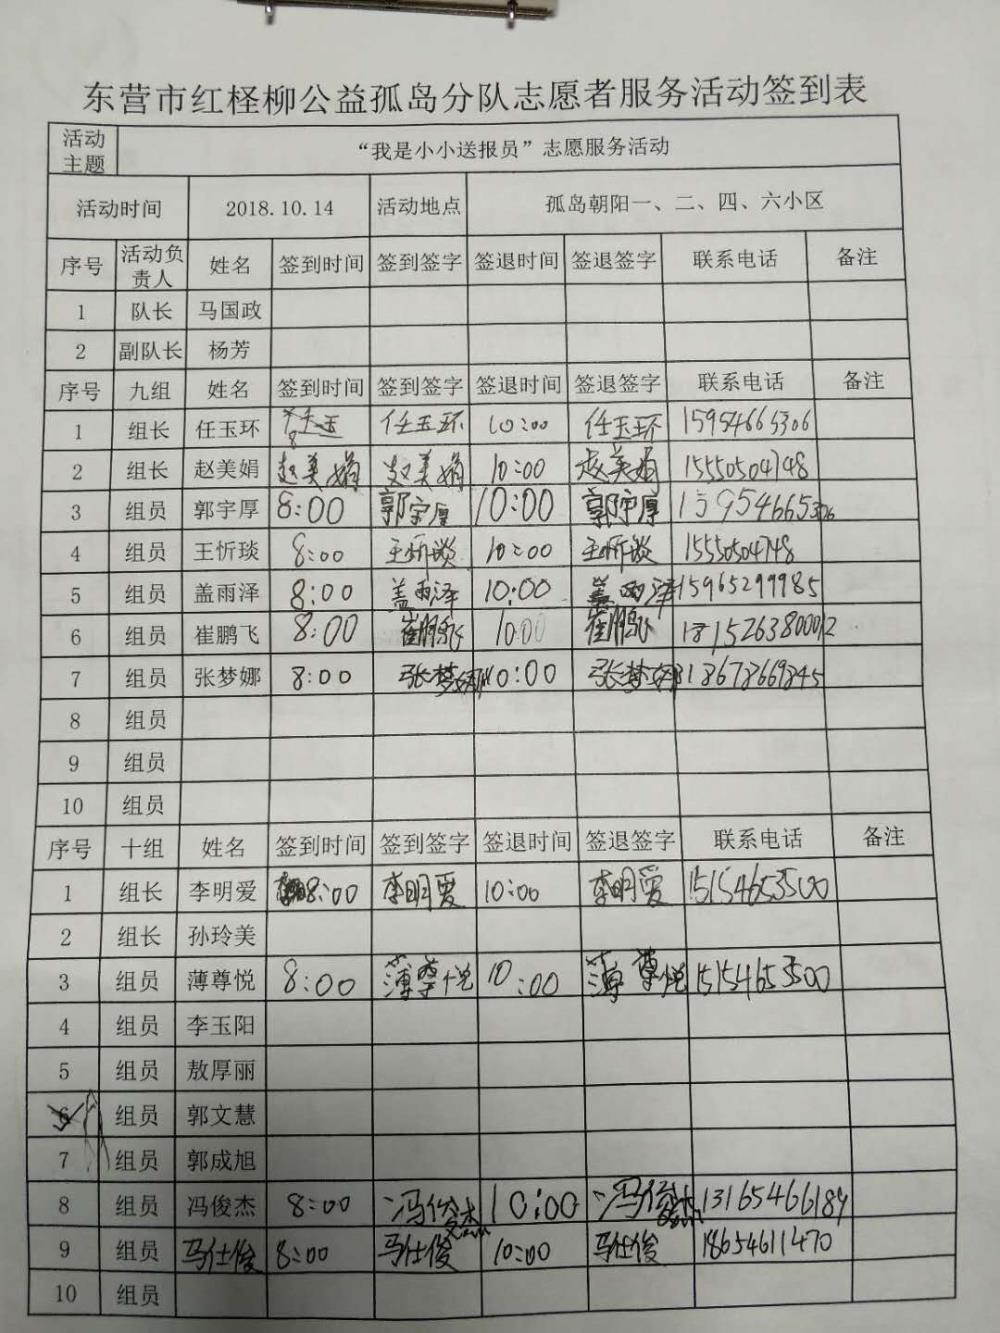 东营市红柽柳公益孤岛分队志愿者服务活动签到表
活动主题 “我是小小送报员”志愿服务活动
活动时间 2018.10.14 活动地点 孤岛朝阳一、二、四、六小区
序号 活动负责人 姓名 签到时间 签到签字 签退时间 签退签字 联系电话 备注
1 队长 马国政
2 副队长 杨芳
序号 九组 姓名 签到时间 签到签字 签退时间 签退签字 联系电话 备注
1 组长 任玉环 任玉环 10:00 任玉环 15954665306
2 组长 赵美娟 赵美娟 赵美娟 10:00 赵美娟 15550504748
3 组员 郭宇厚 8:00 郭宇厚 10:00 郭宇厚 15954665306
4 组员 王忻琰 8:00 王忻琰 10:00 王忻琰 15550504748
5 组员 盖雨泽 8:00 盖雨泽 10:00 盖雨泽 15965299985
6 组员 崔鹏飞 8:00 崔鹏飞 10:00 崔鹏飞
7 组员 张梦娜 8:00 张梦娜 10:00 张梦娜
8 组员
9 组员
10 组员
序号 十组 姓名 签到时间 签到签字 签退时间 签退签字 联系电话 备注
1 组长 李明爱 8:00 李明爱 10:00 李明爱 15154653500
2 组长 孙玲美
3 组员 薄尊悦 8:00 薄尊悦 10:00 薄尊悦 15154653500
4 组员 李玉阳
5 组员 敖厚丽
6 组员 郭文慧
7 组员 郭成旭
8 组员 冯俊杰 8:00 冯俊杰 10:00 冯俊杰 13165466189
9 组员 马仕俊 8:00 马仕俊 10:00 马仕俊 18654611470
10 组员